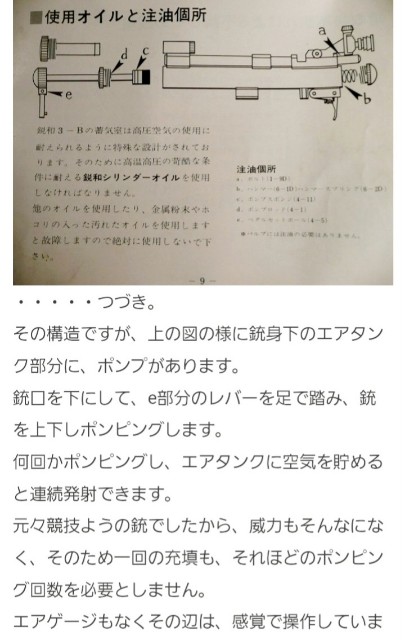 ■使用オイルと注油個所
a
d
c
e
b
鋭和3－Bの蓄気室は高圧空気の使用に
耐えられるように特殊な設計がされてお
ります。そのために高温高圧の苛酷な条
件に耐える鋭和シリンダーオイルを使用
しなければなりません。
他のオイルを使用したり、金属粉末やホ
コリの入った汚れたオイルを使用します
と故障しますので絶対に使用しないで下
さい。
注油個所
a. ボルト(3-9D)
b. ハンマー(6-1D)ハンマースプリング(6-2D)
c. ポンプピストン(4-11)
d. ポンプロッド(4-1)
e. ペダルセットボール(4-5)
※バルブには注油の必要はありません。
－9－
・・・・・つづき。
その構造ですが、上の図の様に銃身下のエアタン
ク部分に、ポンプがあります。
銃口を下にして、e部分のレバーを足で踏み、銃
を上下しポンピングします。
何回かポンピングし、エアタンクに空気を貯める
と連続発射できます。
元々競技ようの銃でしたから、威力もそんなにな
く、そのため一回の充填も、それほどのポンピン
グ回数を必要としません。
エアゲージもなくその辺は、感覚で操作していま